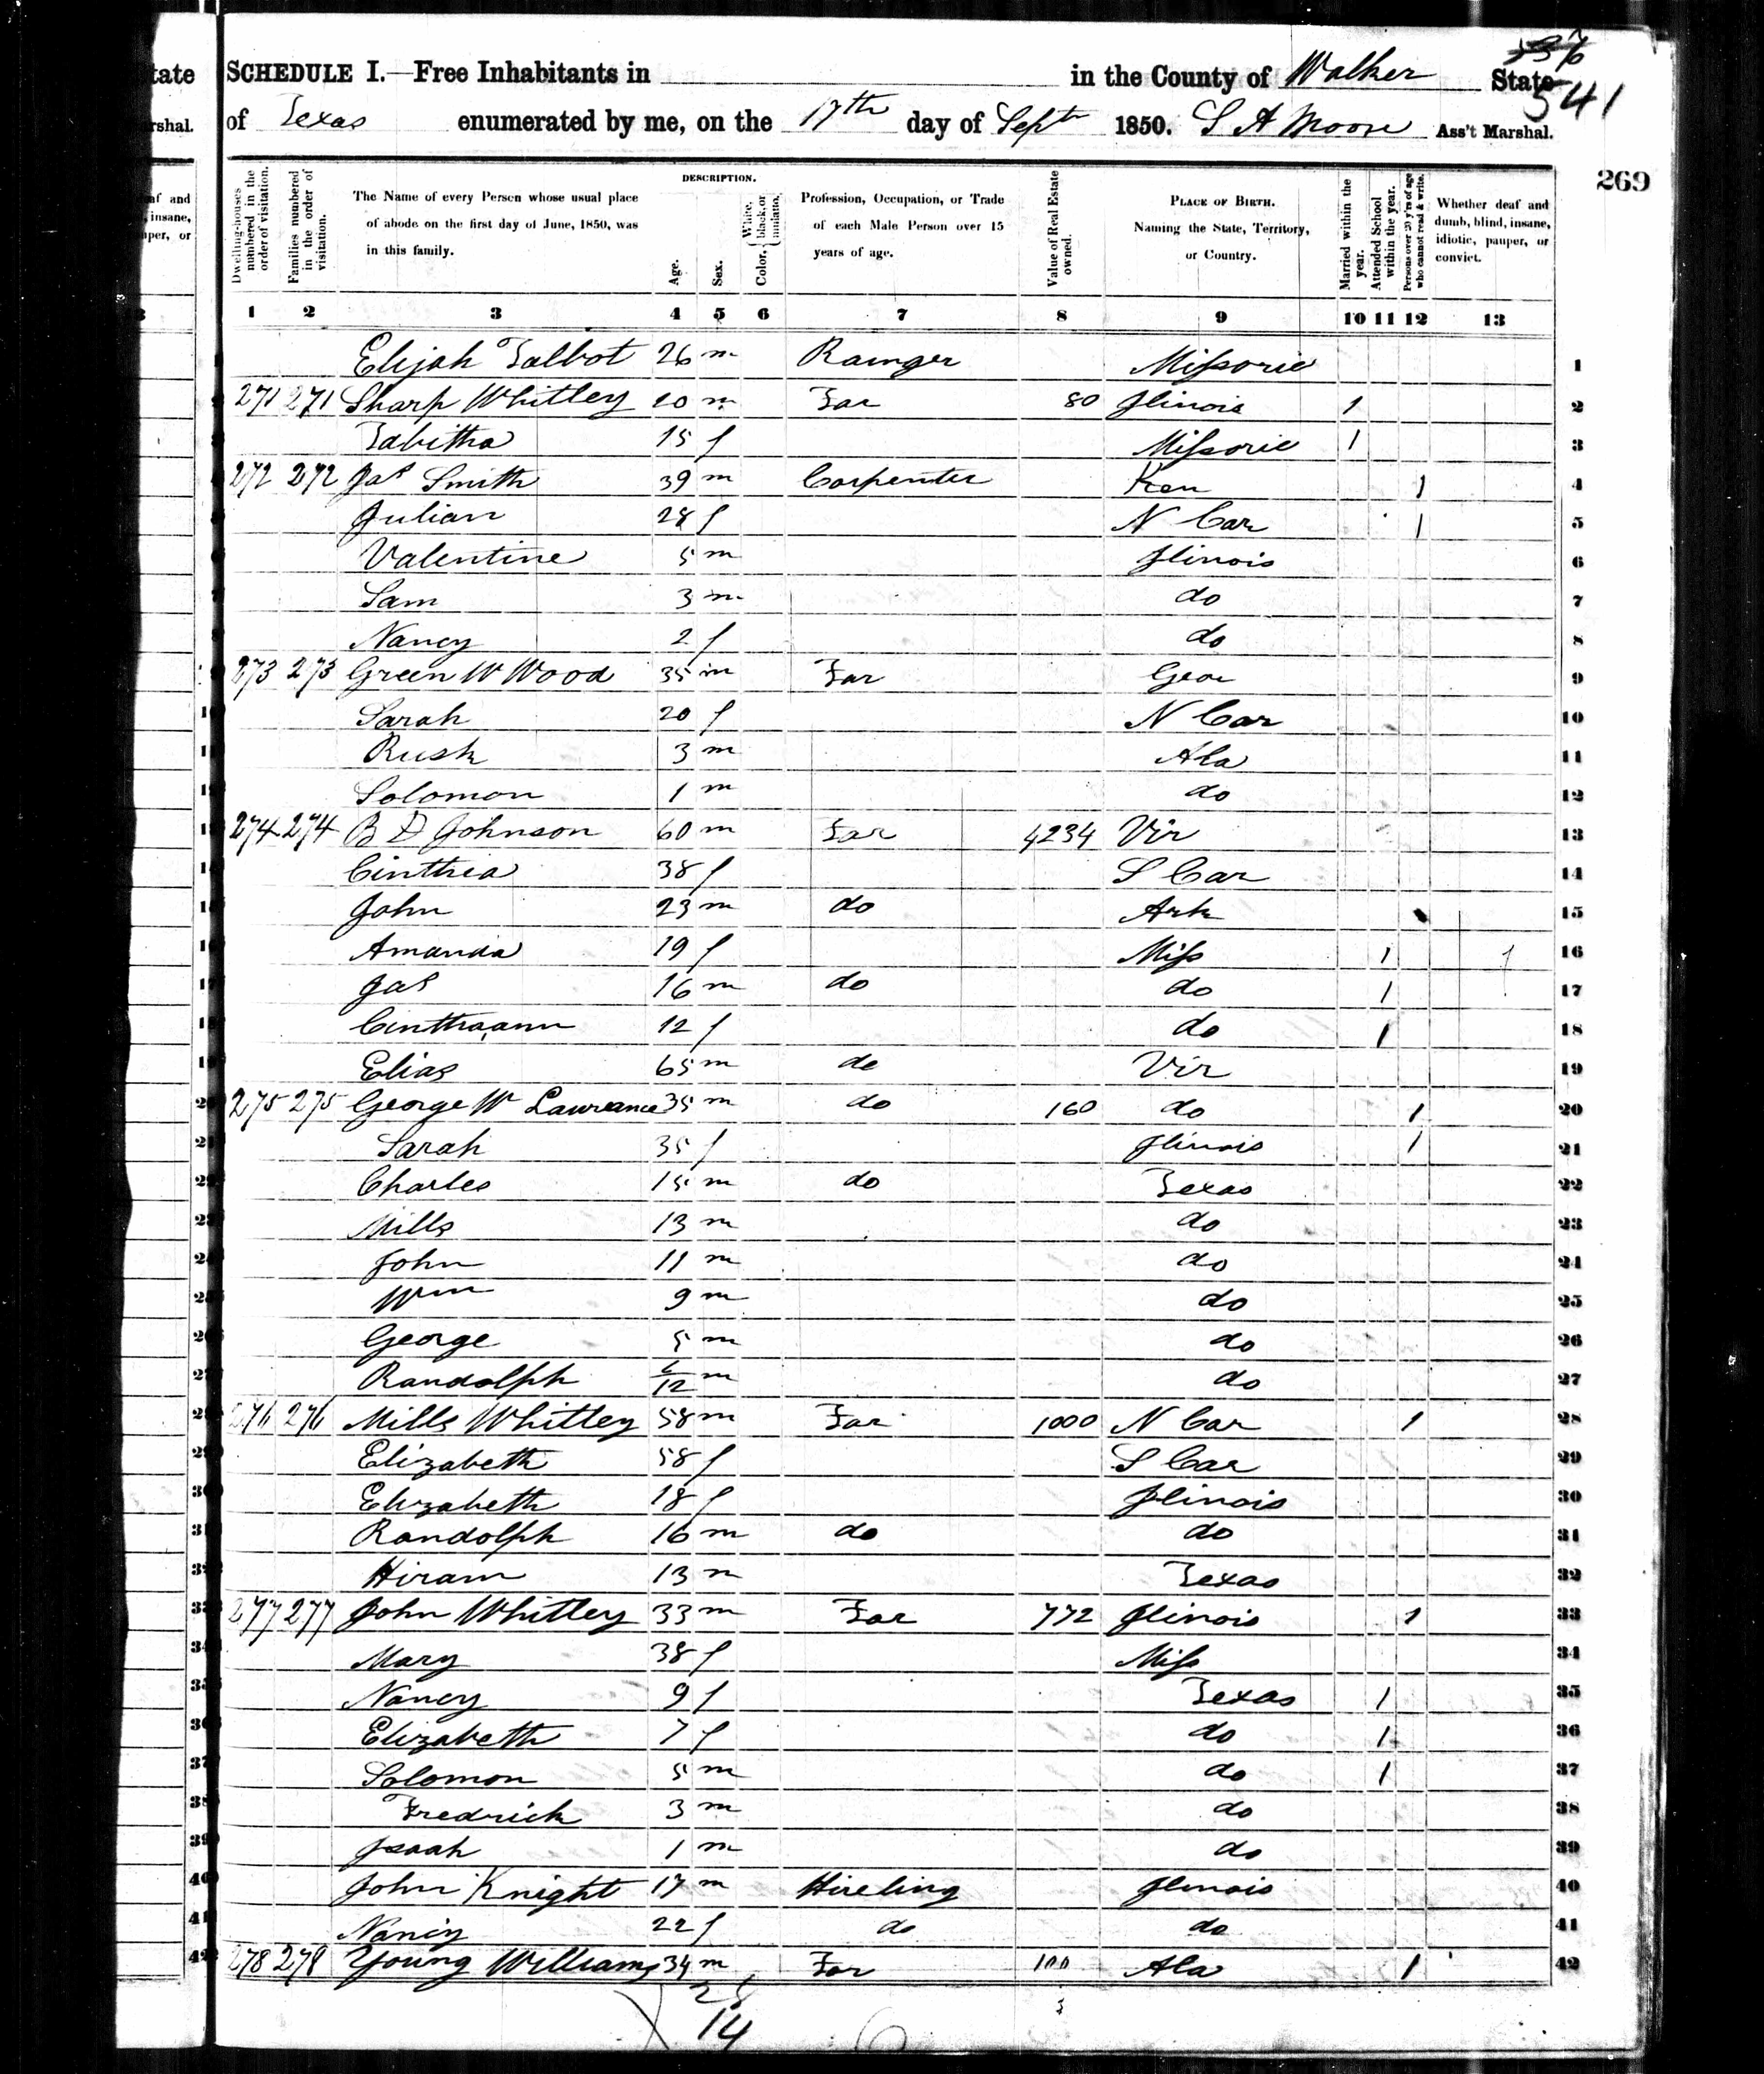 tate
rshal.
af and
insane,
uper, or
536
541
SCHEDULE I.—Free Inhabitants in in the County of Walker State
of Texas enumerated by me, on the 17th day of Sept 1850. S A Moore Ass't Marshal.
269
Dwelling-houses numbered in the order of visitation.
Families numbered in the order of visitation.
The Name of every Person whose usual place of abode on the first day of June, 1850, was in this family.
DESCRIPTION.
Age.
Sex.
Color, { White, black, or mulatto.
Profession, Occupation, or Trade of each Male Person over 15 years of age.
Value of Real Estate owned.
PLACE OF BIRTH. Naming the State, Territory, or Country.
Married within the year.
Attended School within the year.
Persons over 20 y'rs of age who cannot read & write.
Whether deaf and dumb, blind, insane, idiotic, pauper, or convict.
1 2 3 4 5 6 7 8 9 10 11 12 13
Elijah Talbot 26 m Rainger Missorie 1
271 271 Sharp Whitley 20 m Far 80 Illinois 1 2
Tabitha 15 f Missorie 1 3
272 272 Jas Smith 39 m Carpenter Ken 1 4
Julian 28 f N Car 1 5
Valentine 5 m Illinois 6
Sam 3 m do 7
Nancy 2 f do 8
273 273 Green W Wood 35 m Far Geor 9
Sarah 20 f N Car 10
Rusk 3 m Ala 11
Solomon 1 m do 12
274 274 B D Johnson 60 m Far 4234 Vir 13
Cinthia 38 f S Car 14
John 23 m do Ark 15
Amanda 19 f Miss 1 16
Jas 16 m do do 1 17
Cinthaann 12 f do 1 18
Elias 65 m do Vir 19
275 275 George W Lawrance 35 m do 160 do 1 20
Sarah 35 f Illinois 1 21
Charles 15 m do Texas 22
Mills 13 m do 23
John 11 m do 24
Wm 9 m do 25
George 5 m do 26
Randolph 6/12 m do 27
276 276 Mills Whitley 58 m Far 1000 N Car 1 28
Elizabeth 58 f S Car 29
Elizabeth 18 f Illinois 30
Randolph 16 m do do 31
Hiram 13 m Texas 32
277 277 John Whitley 33 m Far 772 Illinois 1 33
Mary 38 f Miss 34
Nancy 9 f Texas 1 35
Elizabeth 7 f do 1 36
Solomon 5 m do 1 37
Fredrick 3 m do 38
Isaah 1 m do 39
John Knight 17 m Hireling Illinois 40
Nancy 22 f do do 41
278 278 Young Williams 34 m Far 100 Ala 1 42
28
14